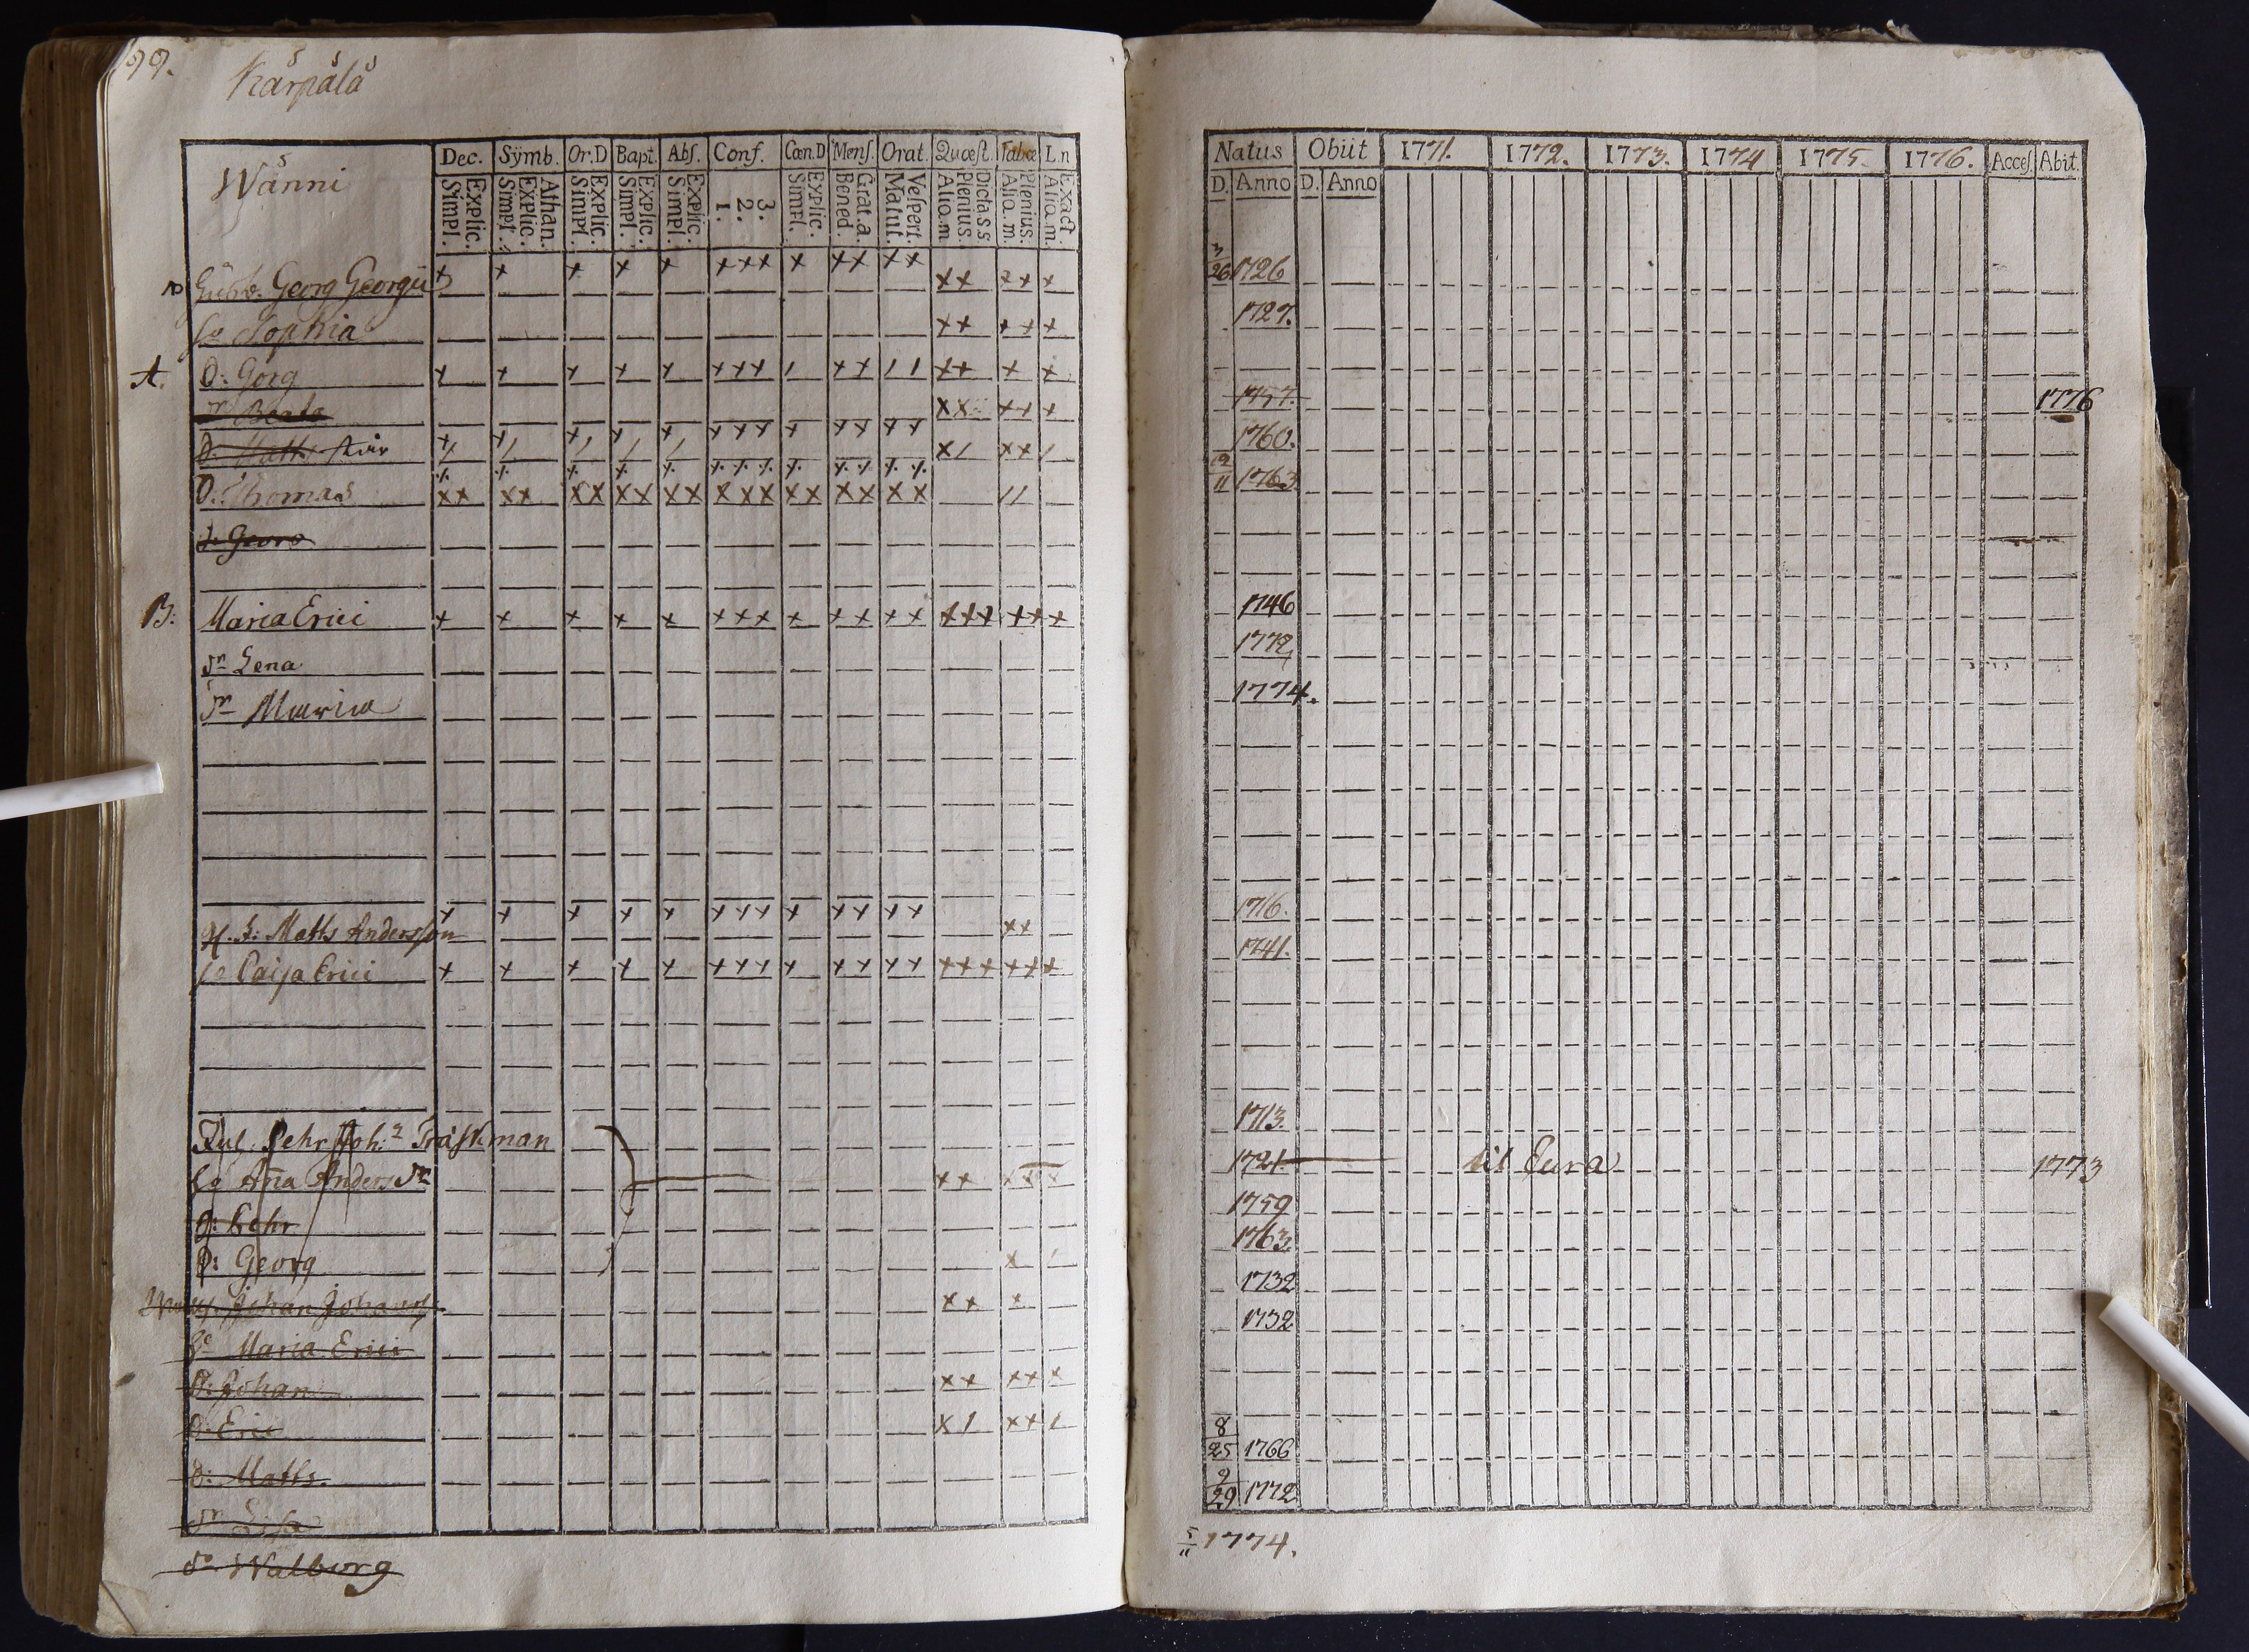 99.
Kårpålå
Wånni
Dec. Sÿmb. Or.D Bapt. Abſ. Conf. Cœn.D Menſ. Orat. Quœſt. Tabœ L.n
Explic. Simpl. Athan. Explic. Simpl. Explic. Simpl. Explic. Simpl. Explic. Simpl. 3. 2. 1. Explic. Simpl. Grat.a. Bened. Veſpert. Matut. Dicta.S S Plenius. Aliq.m Plenius. Aliq.m. Exact. Aliq.m.
Georg Georgii x x x x x xxx x xx xx xx xxx
Sophia xx xxx
A. D: Görg x x x x x xxx / xx // xx x x
Beata xx xxx
D: Matts
D: Thomas xx xx xx xx xx xxx xx xx xx //
Georg
B: Maria Erici x x x x x xxx x xx xx xxx xxx
dr Lena
dr Maria
Matts Andersson x x x x x xxx x xx xx xx
Caisa Erici x x x x x xxx x xx xx xxx xxx
Pehr Joh: Träskman
Aña Anders dr xx xxx
Pehr
D: Georg x /
Johan Johans xx x
Maria Erici
D: Johan xx xxx
D: Eric x / xx /
D: Matts
dr Lisa
dr Walborg
Natus Obiit 1771. 1772. 1773. 1774 1775. 1776. Acceſ. Abit.
D. Anno D. Anno
3/26 1726
1727.
1757. 1776
1760.
12/11 1763
1746
1772
1774.
1716.
1741.
1713.
1721. til Eura 1773
1759
1763
1732
1732
8/25 1766
9/29 1772
5/11 1774.